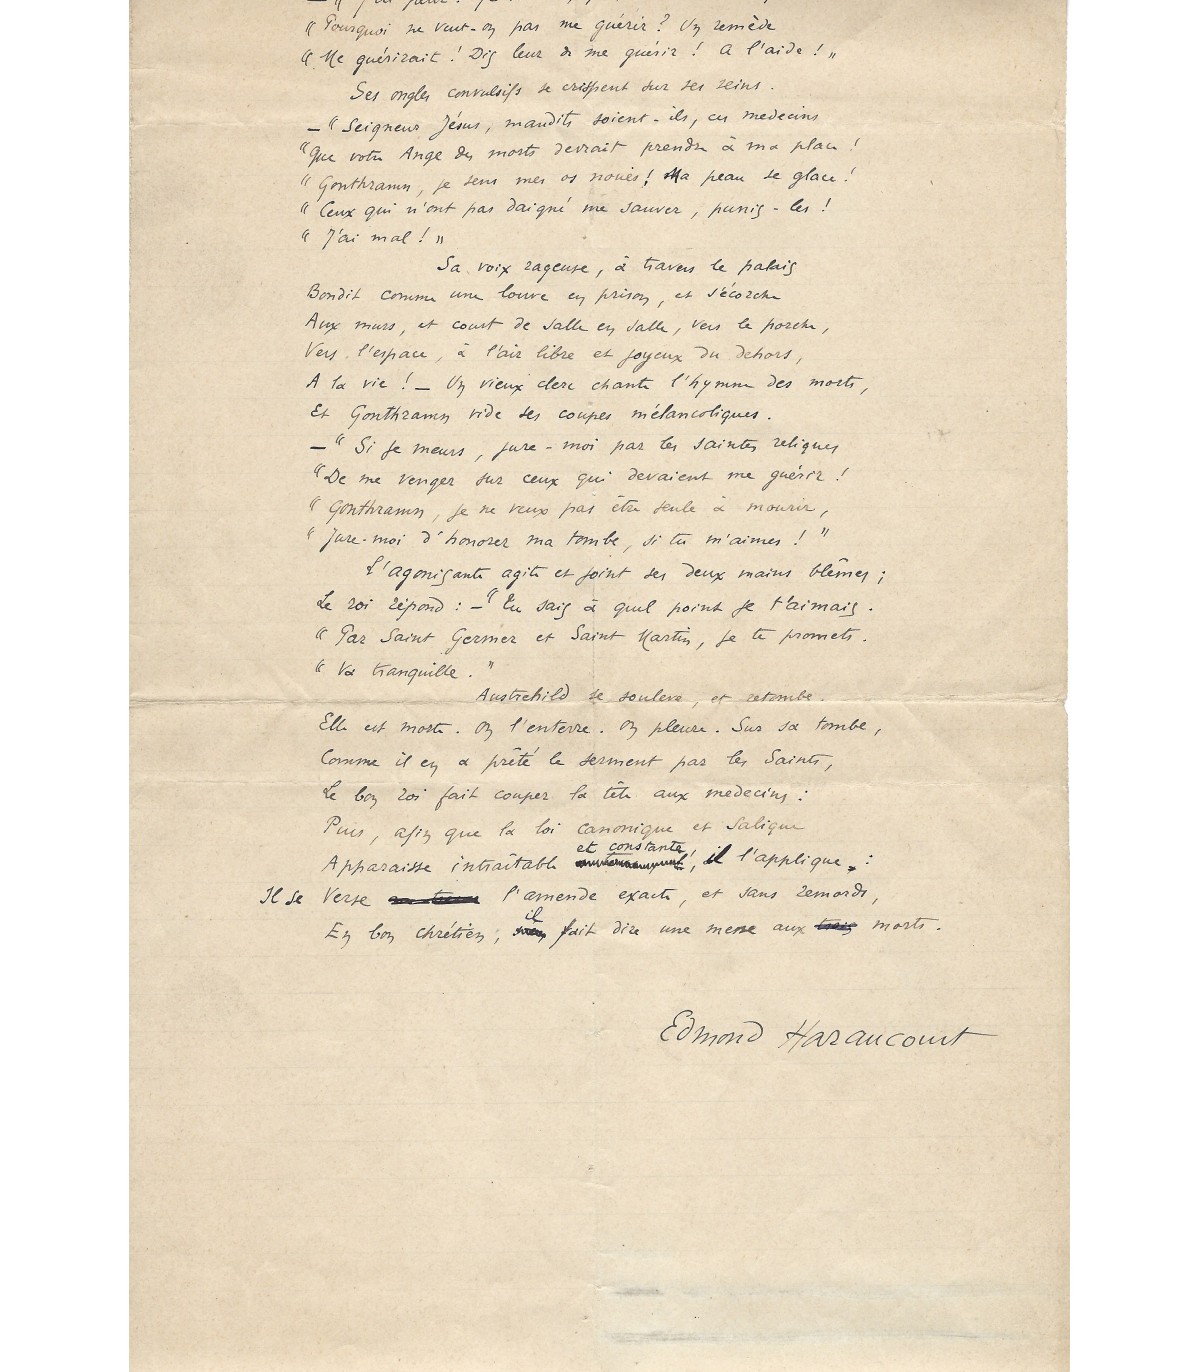 « Pourquoi ne veut-on pas me guérir ? Un remède
« Me guérirait ! Dis leur de me guérir ! A l'aide ! »
Ses ongles convulsifs se crispent sur ses seins.
— « Seigneur Jésus, maudits soient-ils, ces medecins
« Que votre Ange des morts devrait prendre à ma place !
« Gonthramn, je sens mes os noués ! Ma peau se glace !
« Ceux qui n'ont pas daigné me sauver, punis-les !
« J'ai mal ! »
Sa voix rageuse, à travers le palais
Bondit comme une louve en prison, et s'écorche
Aux murs, et court de salle en salle, vers le porche,
Vers l'espace, à l'air libre et joyeux du dehors,
A la vie ! — Un vieux clerc chante l'hymne des morts,
Et Gonthramn vide ses coupes mélancoliques.
— « Si je meurs, jure-moi par les saintes reliques
« De me venger sur ceux qui devaient me guérir !
« Gonthramn, je ne veux pas être seule à mourir,
« Jure-moi d'honorer ma tombe, si tu m'aimes ! "
L'agonisante agite et joint ses deux mains blêmes ;
Le roi répond : — « Tu sais à quel point je t'aimais.
« Par Saint Germer et Saint Martin, je te promets.
« Va tranquille. "
Austrehild se soulève, et retombe.
Elle est morte. On l'enterre. On pleure. Sur sa tombe,
Comme il en a prêté le serment par les Saints,
Le bon roi fait couper la tête aux medecins :
Puis, afin que la loi canonique et salique
Apparaisse intraitable et constante, il l'applique :
Il se Verse l'amende exacte, et sans remords,
En bon chrétien, il fait dire une messe aux trois morts.
Edmond Haraucourt